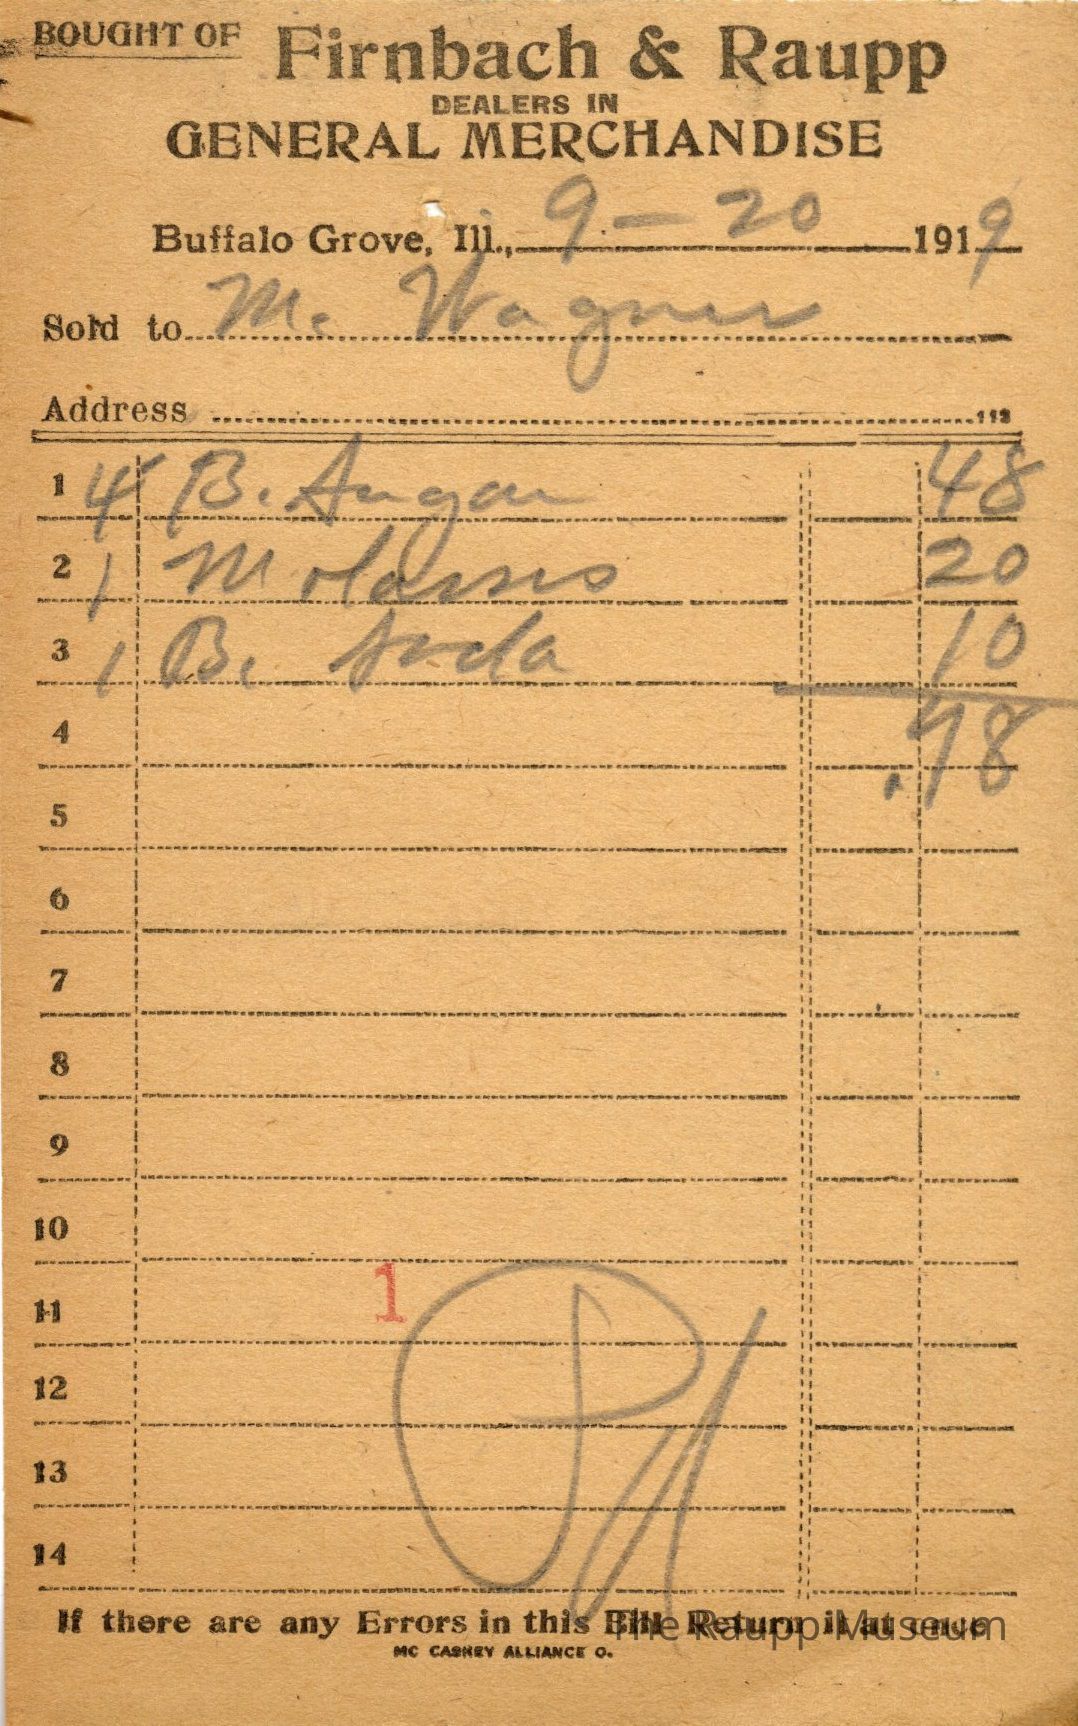 BOUGHT OF Firnbach & Raupp
DEALERS IN
GENERAL MERCHANDISE
Buffalo Grove, Ill., 9-20 1919
Sold to M. Wagner
Address 113
1 4 B. Sugar 48
2 1 Molasses 20
3 1 B. Soda 10
4 .78
5
6
7
8
9
10
1
11
12
13
14
If there are any Errors in this Bill Return it at once
The Raupp Museum
MC CASKEY ALLIANCE O.